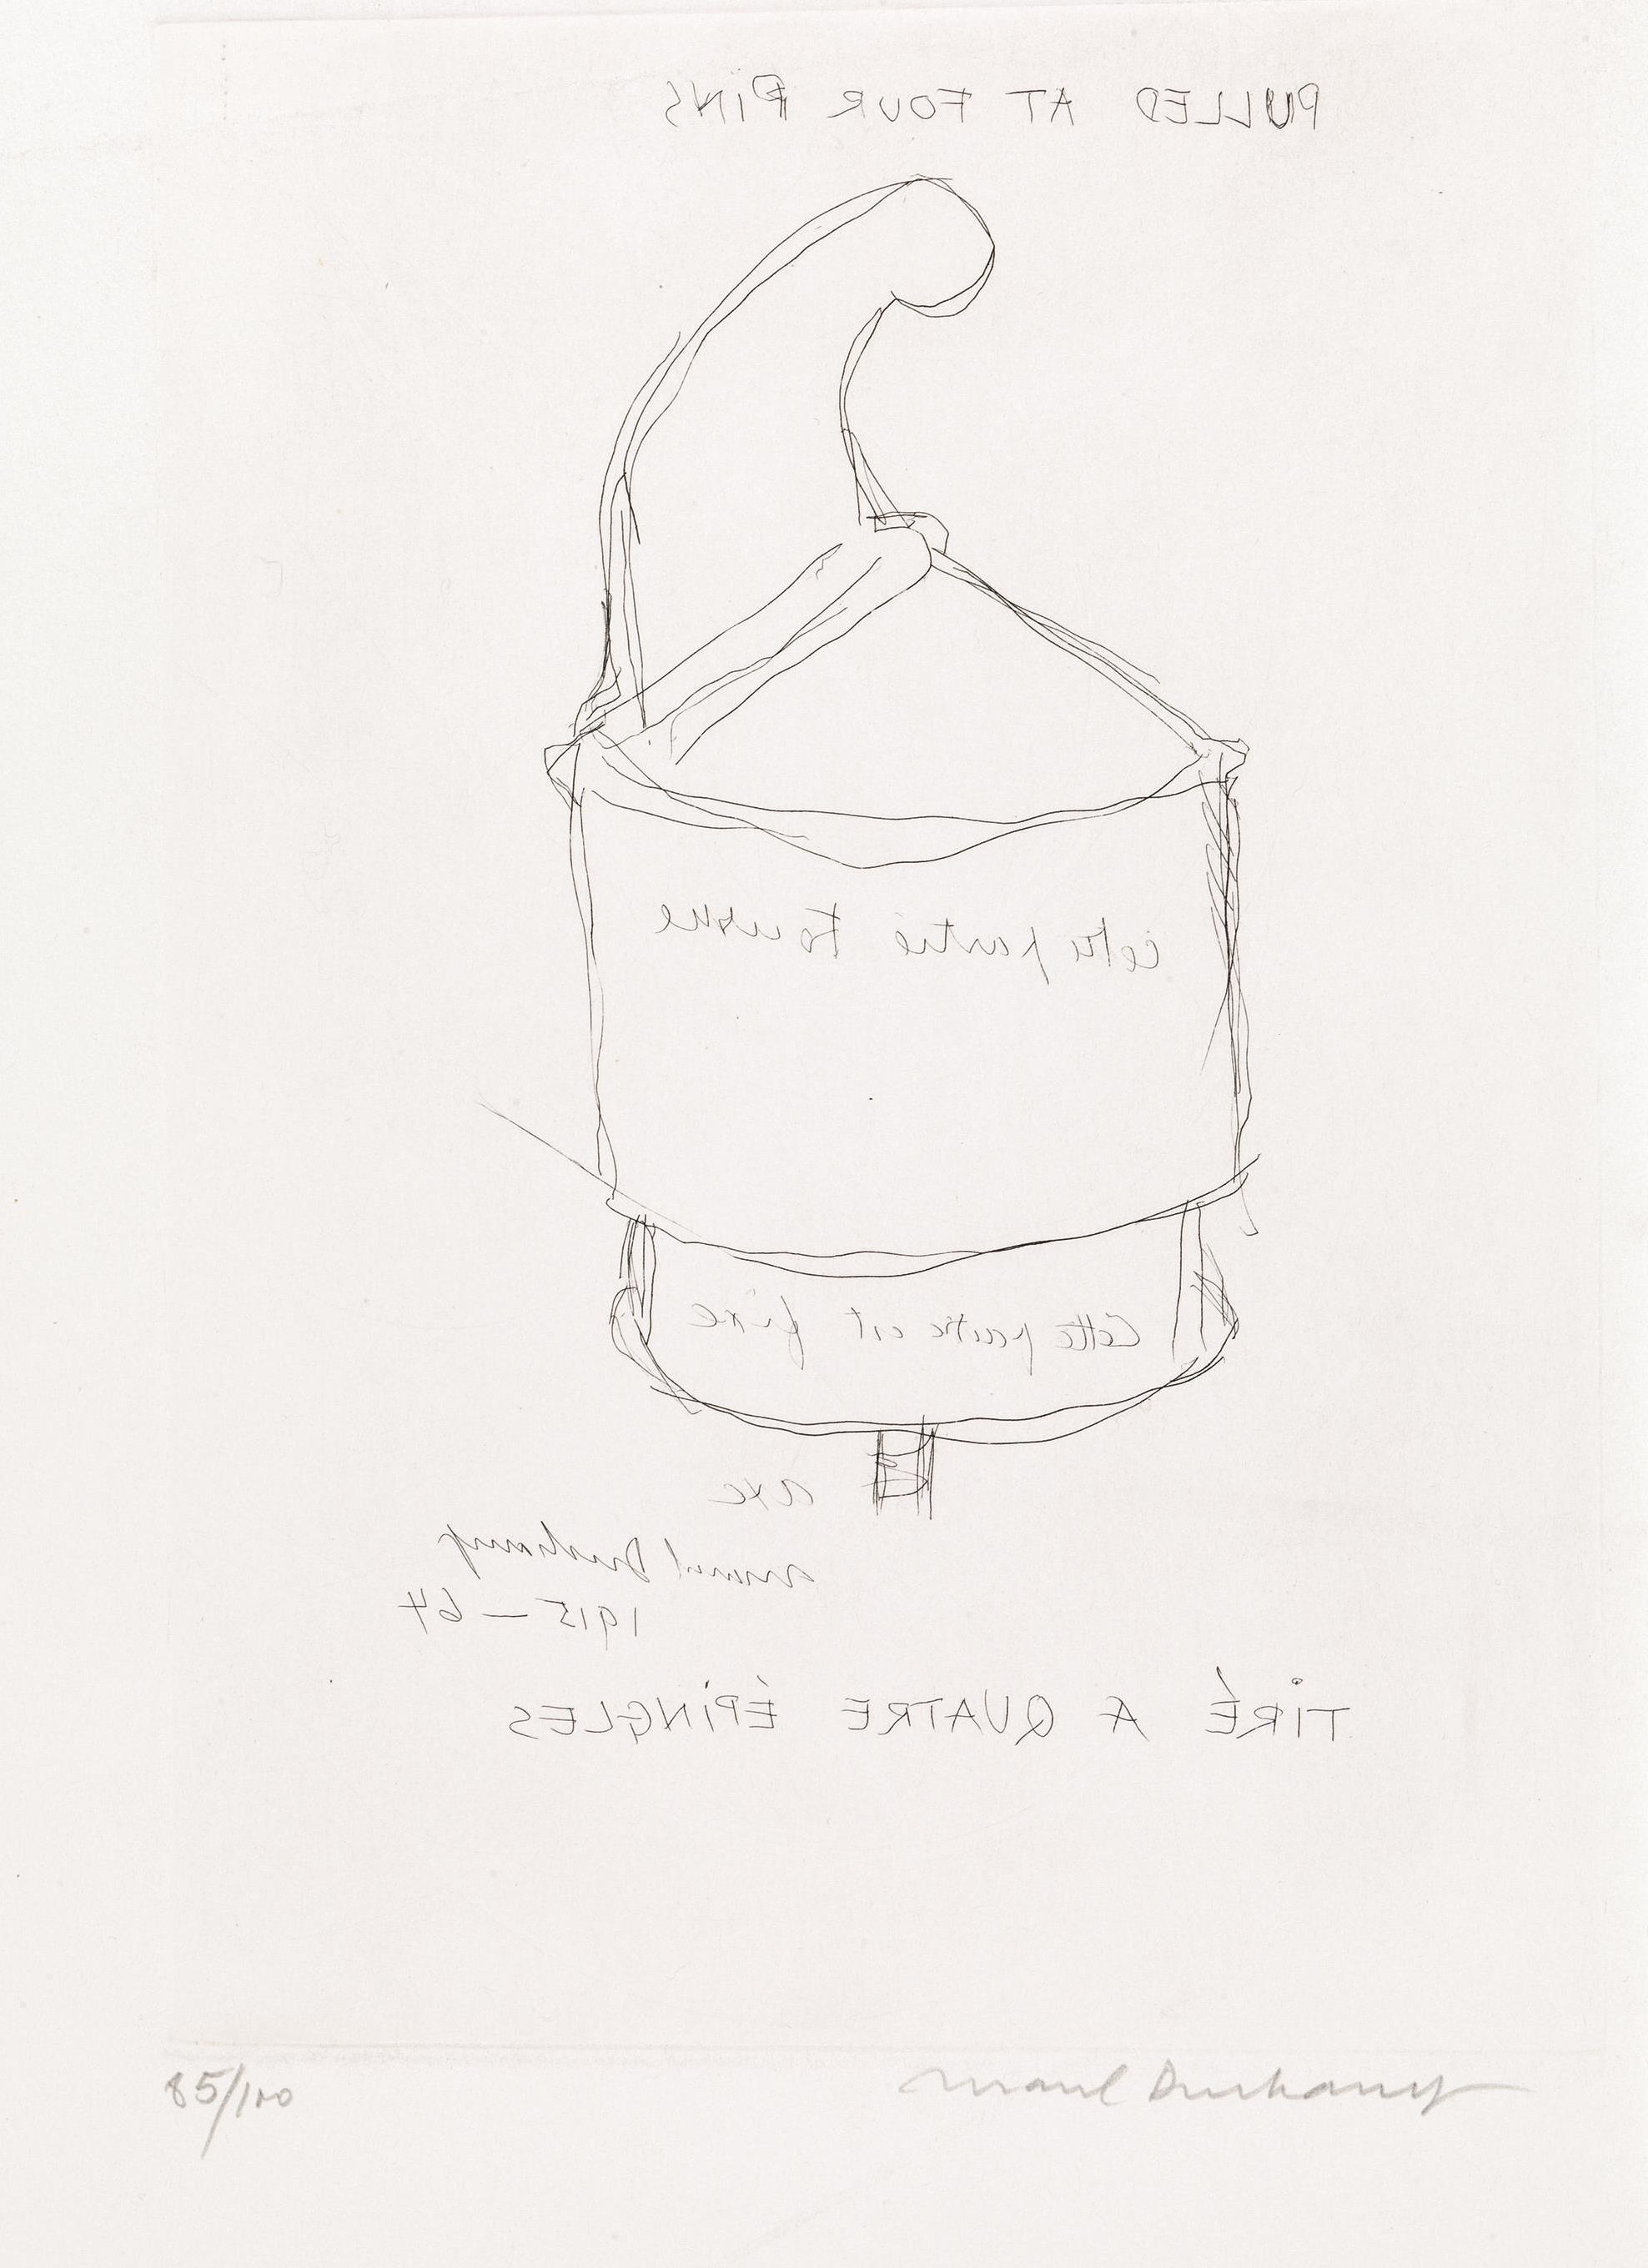 PULLED AT FOUR PINS
cette partie tourne
cette partie est fixe
axe
Marcel Duchamp
1915 – 64
TIRÉ A QUATRE ÉPINGLES
85/100
Marcel Duchamp